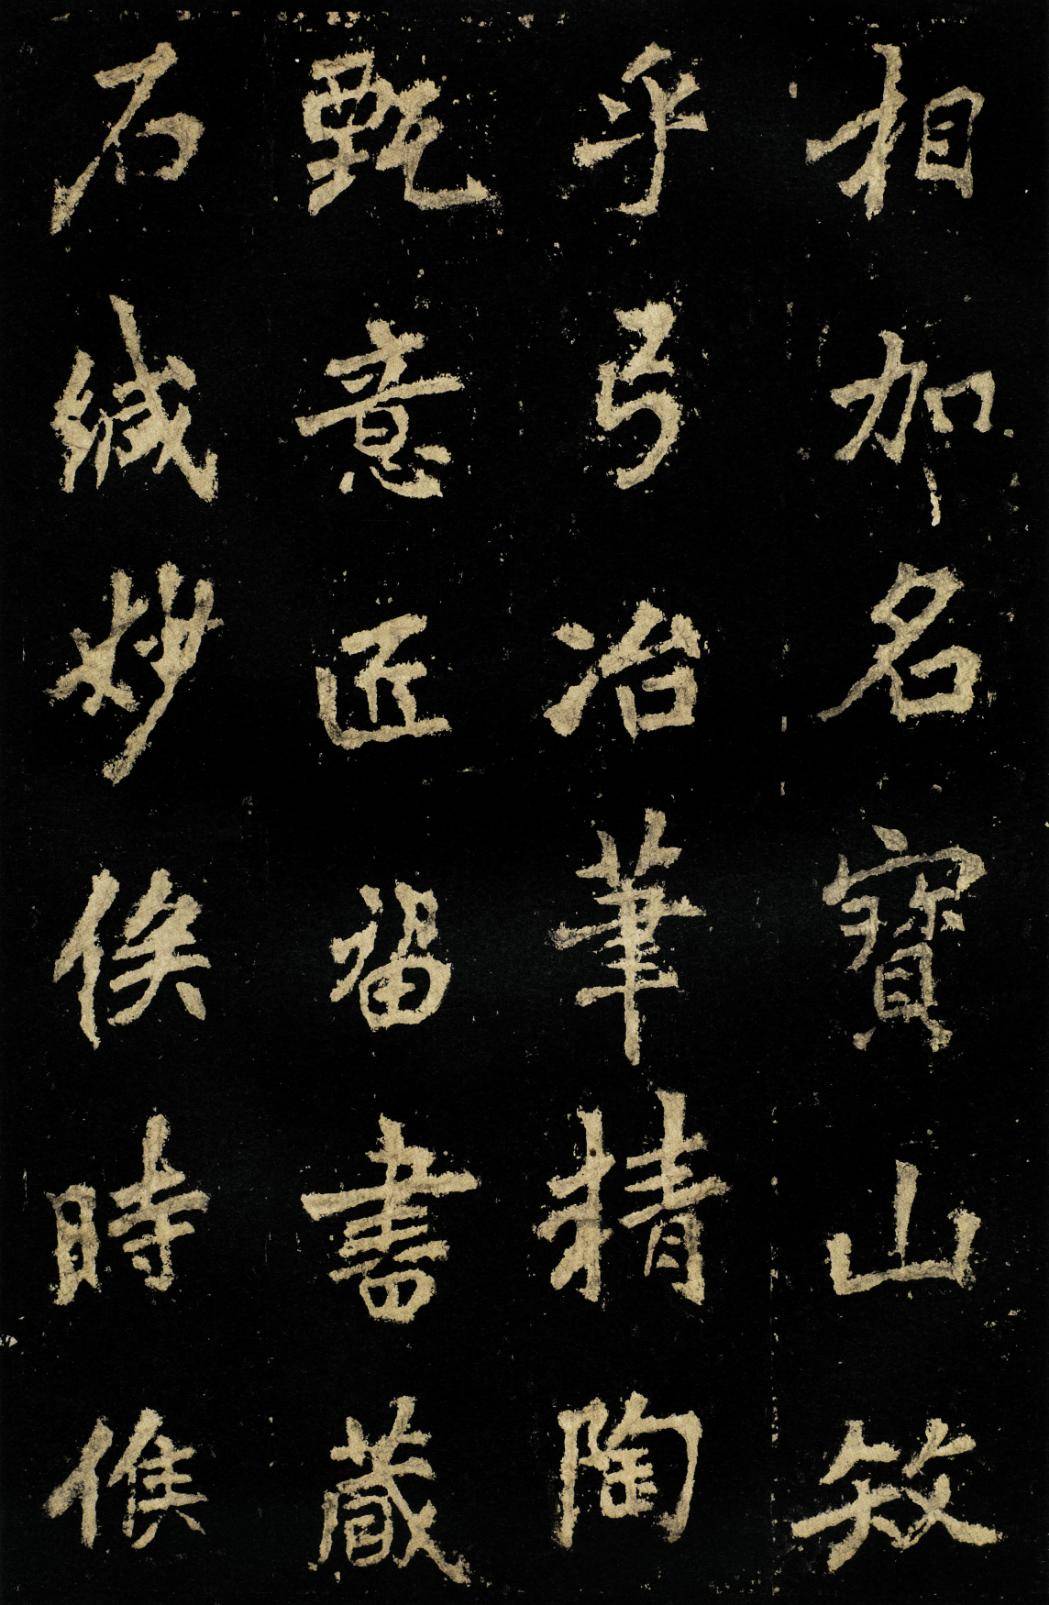 相加名寶山
乎弓冶筆精陶
甄意匠留書藏
石緘妙俟時